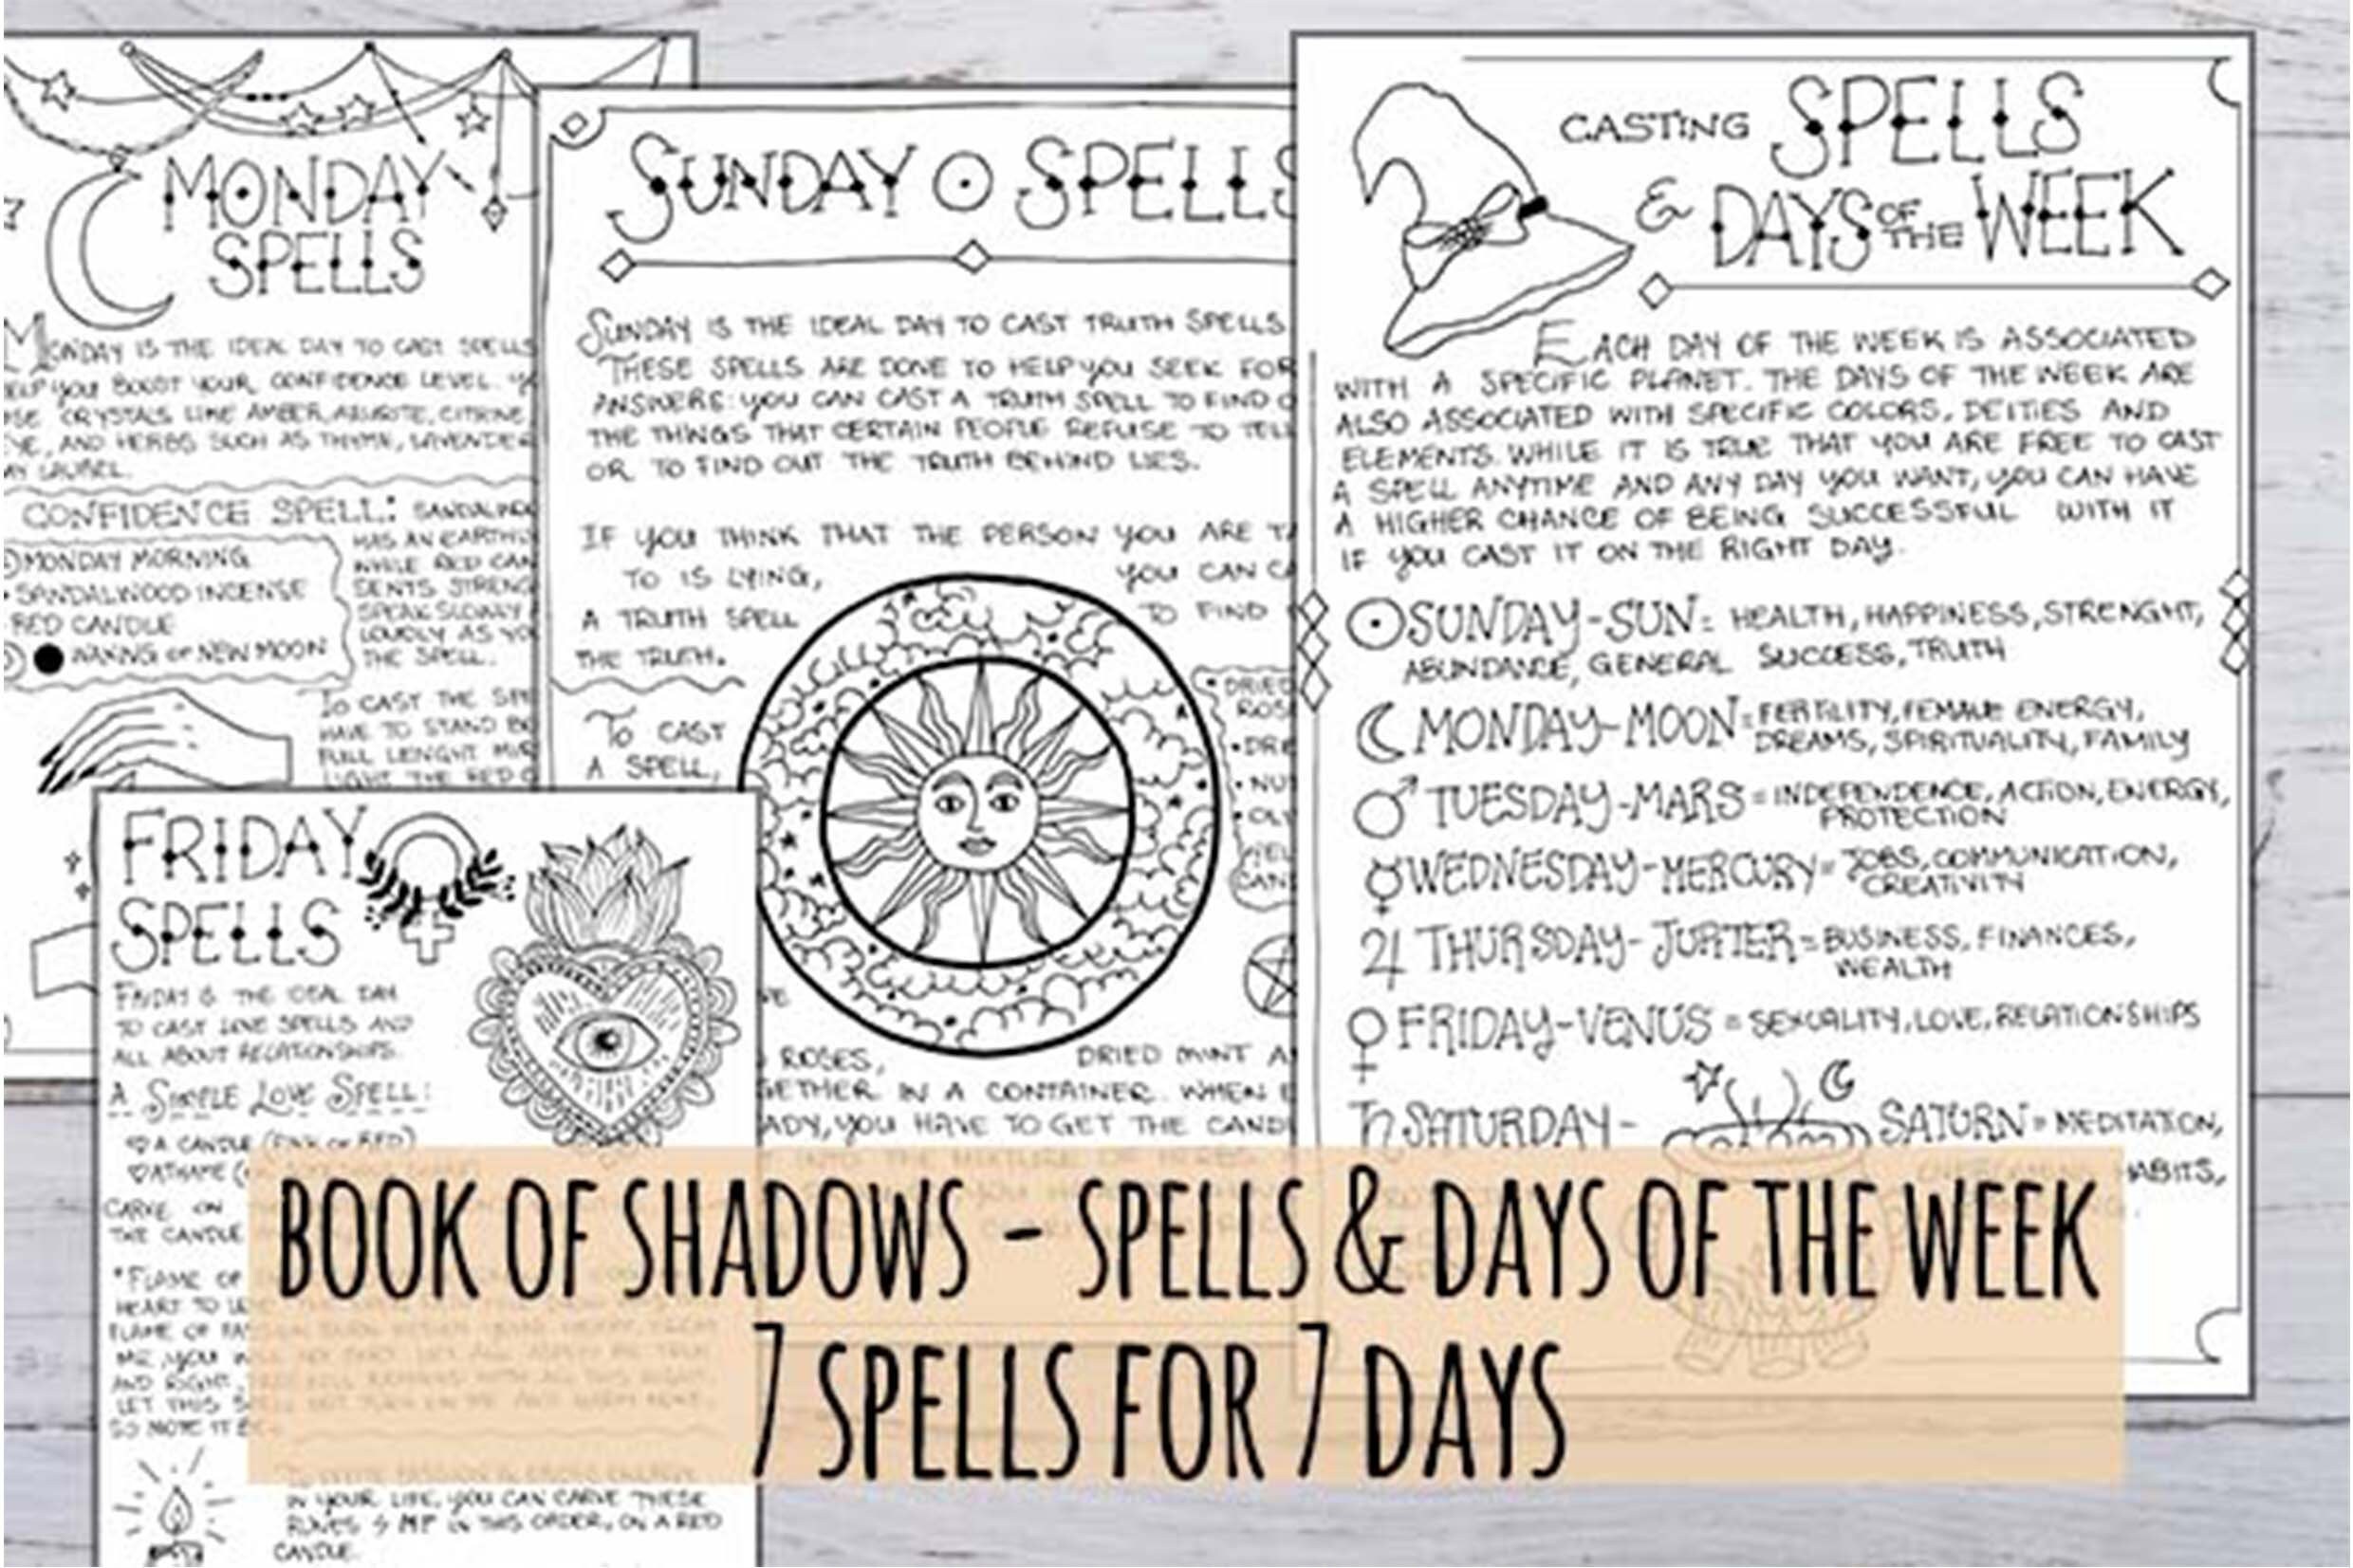 MONDAY
SPELLS
MONDAY IS THE IDEAL DAY TO CAST SPELLS
YOU BOOST YOUR CONFIDENCE LEVEL.
CRYSTALS LIKE AMBER, CITRINE
AND HERBS SUCH AS THYME, LAVENDER
LAUREL
CONFIDENCE SPELL:
MONDAY MORNING
SANDALWOOD INCENSE
RED CANDLE
WAXING OR NEW MOON
HAS AN EARTHY
WHILE RED CAN
SENTS STRENG
SPEAK SLOWLY
LOUDLY AS YO
THE SPELL.
TO CAST THE SPE
HAVE TO STAND BE
FULL LENGHT MIR
LIGHT THE RED C
SUNDAY SPELLS
SUNDAY IS THE IDEAL DAY TO CAST TRUTH SPELLS
THESE SPELLS ARE DONE TO HELP YOU SEEK FOR
ANSWERS: YOU CAN CAST A TRUTH SPELL TO FIND O
THE THINGS THAT CERTAIN PEOPLE REFUSE TO TELL
OR TO FIND OUT THE TRUTH BEHIND LIES.
IF YOU THINK THAT THE PERSON YOU ARE TA
TO IS LYING, YOU CAN CA
A TRUTH SPELL TO FIND
THE TRUTH.
TO CAST
A SPELL,
DRIED
ROS
DRIED
ROSES, DRIED MINT A
GETHER IN A CONTAINER. WHEN E
ADY, YOU HAVE TO GET THE CAND
CASTING SPELLS
& DAYS OF THE WEEK
EACH DAY OF THE WEEK IS ASSOCIATED
WITH A SPECIFIC PLANET. THE DAYS OF THE WEEK ARE
ALSO ASSOCIATED WITH SPECIFIC COLORS, DEITIES AND
ELEMENTS. WHILE IT IS TRUE THAT YOU ARE FREE TO CAST
A SPELL ANYTIME AND ANY DAY YOU WANT, YOU CAN HAVE
A HIGHER CHANCE OF BEING SUCCESSFUL WITH IT
IF YOU CAST IT ON THE RIGHT DAY.
SUNDAY-SUN= HEALTH, HAPPINESS, STRENGHT,
ABUNDANCE, GENERAL SUCCESS, TRUTH
MONDAY-MOON= FERTILITY, FEMALE ENERGY,
DREAMS, SPIRITUALITY, FAMILY
TUESDAY-MARS= INDEPENDENCE, ACTION, ENERGY,
PROTECTION
WEDNESDAY-MERCURY= JOBS, COMMUNICATION,
CREATIVITY
THURSDAY-JUPITER= BUSINESS, FINANCES,
WEALTH
FRIDAY-VENUS= SEXUALITY, LOVE, RELATIONSHIPS
SATURDAY- SATURN= MEDITATION,
HABITS,
FRIDAY
SPELLS
FRIDAY IS THE IDEAL DAY
TO CAST LOVE SPELLS AND
ALL ABOUT RELATIONSHIPS.
A SIMPLE LOVE SPELL:
A CANDLE (PINK OR RED)
ATHAME
CARVE ON
THE CANDLE
"FLAME OF
HEART TO
FLAME OF
ME YOU
AND RIGHT,
LET THIS
SO MOTE IT BE
IN YOUR LIFE, YOU CAN CARVE THESE
RUNES IN THIS ORDER, ON A RED
CANDLE.
BOOK OF SHADOWS - SPELLS & DAYS OF THE WEEK
7 SPELLS FOR 7 DAYS